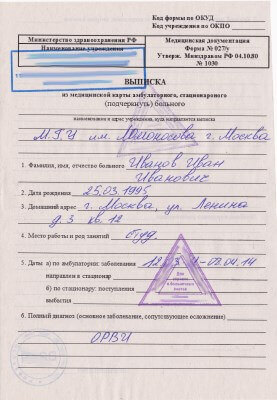 Код формы по ОКУД
Код учреждения по ОКПО
Министерство здравоохранения РФ
Наименование учреждения
Медицинская документация
Форма № 027/у
Утверж. Минздравом РФ 04.10.80
№ 1030
ВЫПИСКА
из медицинской карты амбулаторного, стационарного
(подчеркнуть) больного
МГУ им. Ломоносова г. Москва
наименование и адрес учреждения, куда направляется выписка
1. Фамилия, имя, отчество больного Иванов Иван
Иванович
2. Дата рождения 25.03.1995
3. Домашний адрес г. Москва, ул. Ленина
д. 3 кв. 12
4. Место работы и род занятий студ.
5. Даты: а) по амбулатории: заболевания
направлен в стационар
б) по стационару: поступления
выбытия
6. Полный диагноз (основное заболевание, сопутствующее осложнение)
ОРВИ